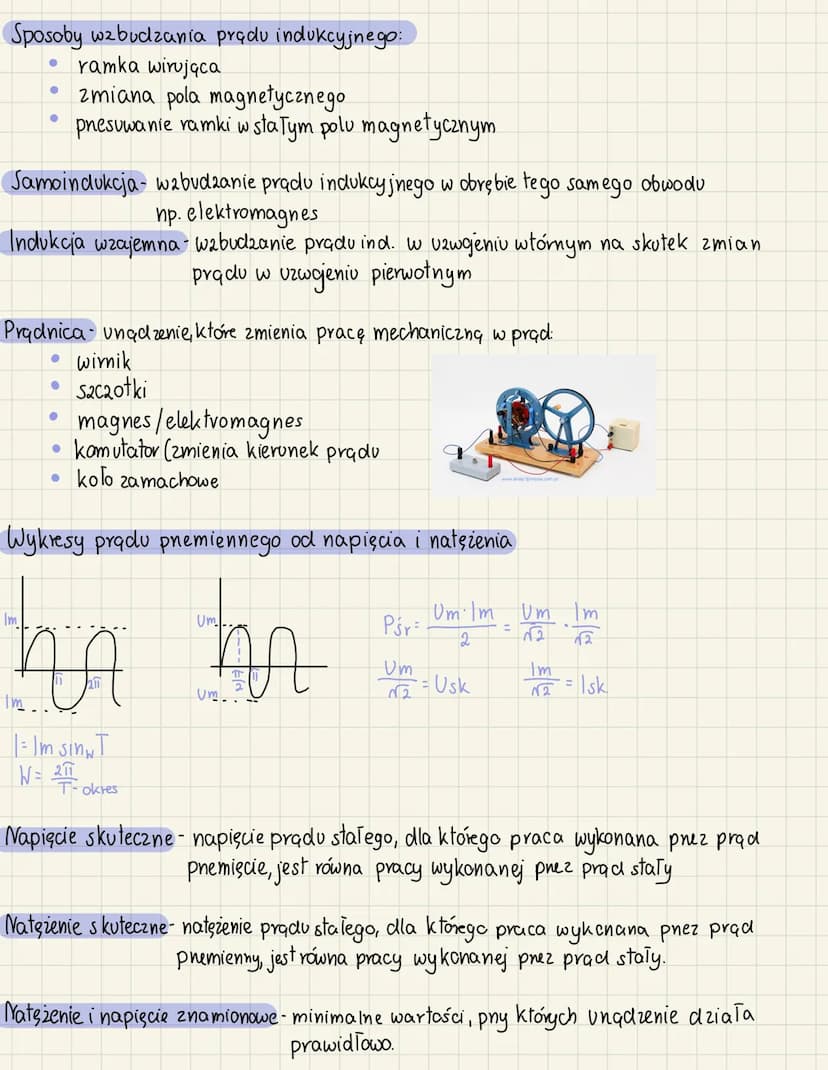 Sposoby wzbudzania prądu indukcyjnego:
• ramka wirująca
• zmiana pola magnetycznego
• przesuwanie ramki w stałym polu magnetycznym
Samoindukcja - wzbudzanie prądu indukcyjnego w obrębie tego samego obwodu
np. elektromagnes
Indukcja wzajemna - wzbudzanie prądu ind. w uzwojeniu wtórnym na skutek zmian
prądu w uzwojeniu pierwotnym
Prądnica - urządzenie, które zmienia pracę mechaniczną w prąd:
• wirnik
• szczotki
• magnes/elektromagnes
• komutator (zmienia kierunek prądu
• koło zamachowe
Wykresy prądu przemiennego od napięcia i natężenia
Im
Im
π
2π
Um
Um
π/2
π
Pśr = Um·Im/2 = Um/√2 · Im/√2
Um/√2 = Usk
Im/√2 = Isk
I = Im sin w T
W = 2π/T - okres
Napięcie skuteczne - napięcie prądu stałego, dla którego praca wykonana przez prąd
przemięcie, jest równa pracy wykonanej przez prąd stały
Natężenie skuteczne - natężenie prądu stałego, dla którego praca wykonana przez prąd
przemienny, jest równa pracy wykonanej przez prąd stały.
Natężenie i napięcie znamionowe - minimalne wartości, przy których urządzenie działa
prawidłowo.